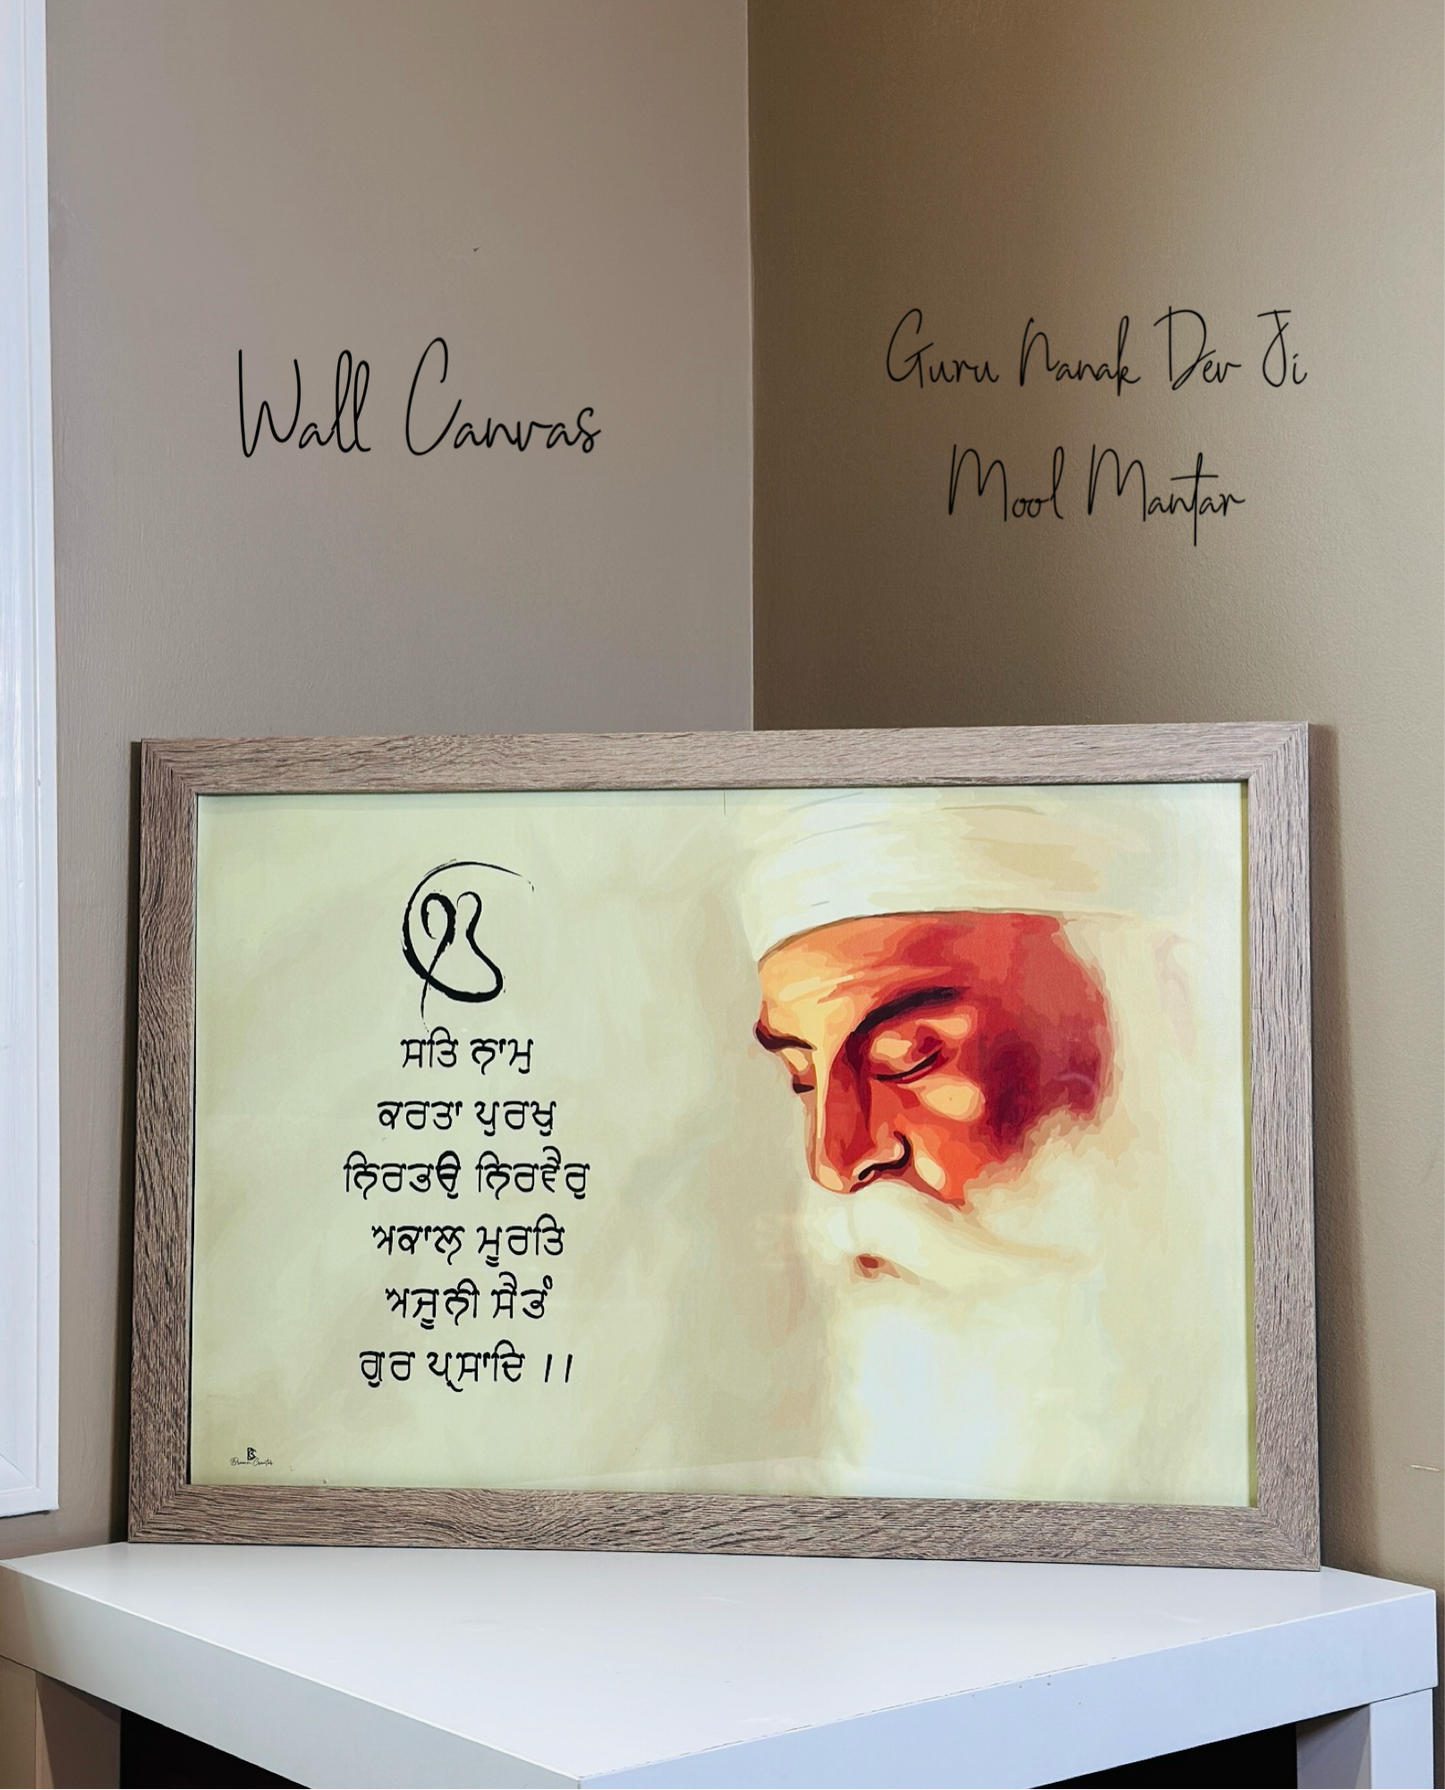 Wall Canvas
Guru Nanak Dev Ji
Mool Mantar
ੴ
ਸਤਿ ਨਾਮੁ
ਕਰਤਾ ਪੁਰਖੁ
ਨਿਰਭਉ ਨਿਰਵੈਰੁ
ਅਕਾਲ ਮੂਰਤਿ
ਅਜੂਨੀ ਸੈਭੰ
ਗੁਰ ਪ੍ਰਸਾਦਿ ।।